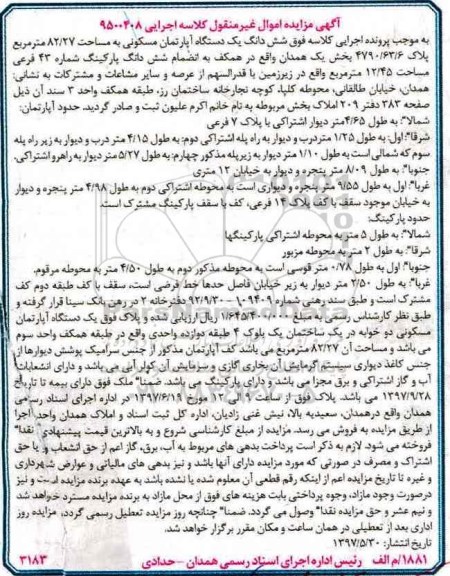 آگهی مزایده اموال غیرمنقول کلاسه اجرایی ۹۵۰۰۴۰۸
به موجب پرونده اجرایی کلاسه فوق شش دانگ یک دستگاه آپارتمان مسکونی به مساحت ۸۲/۲۷ مترمربع
پلاک ۴۷۹۰/۶۳/۶ بخش یک همدان واقع در همکف به انضمام شش دانگ پارکینگ شماره ۴۳ فرعی
مساحت ۱۲/۴۵ مترمربع واقع در زیرزمین با قدرالسهم از عرصه و سایر مشاعات و مشترکات به نشانی:
همدان، خیابان طالقانی، محوطه کلپا، کوچه نجارخانه ساختمان رز، طبقه همکف واحد ۳ سند آن ذیل
صفحه ۳۸۳ دفتر ۲۰۹ املاک بخش مربوطه به نام خانم اکرم علیون ثبت و صادر گردید. حدود آپارتمان:
شمالا": به طول ۴/۶۵ متر دیوار اشتراکی با پلاک ۷ فرعی
شرقا": اول: به طول ۱/۲۵ متر درب و دیوار به راه پله اشتراکی دوم: به طول ۴/۱۵ متر درب و دیوار به زیر راه پله
سوم که شمالی است به طول ۱/۱۰ متر دیوار به زیرپله مذکور چهارم: به طول ۵/۲۷ متر دیوار به راهرو اشتراکی.
جنوبا": به طول ۸/۰۹ متر پنجره و دیوار به خیابان ۱۲ متری
غربا": اول به طول ۹/۵۵ متر پنجره و دیواری است به محوطه اشتراکی دوم به طول ۴/۹۸ متر پنجره و دیوار
به خیابان موجود سقف با کف پلاک ۱۴ فرعی، کف با سقف پارکینگ مشترک است.
حدود پارکینگ:
شمالا": به طول ۵ متر به محوطه اشتراکی پارکینگها
شرقا": به طول ۲ متر به محوطه مزبور
جنوبا": اول به طول ۰/۷۸ متر قوسی است به محوطه مذکور دوم به طول ۴/۵۰ متر به محوطه مرقوم.
غربا": به طول ۲/۵۰ متر دیوار به زیر خیابان فاصل حدها خط فرضی است، سقف با کف طبقه دوم کف
مشترک است و طبق سند رهنی شماره ۱۰۹۴۰۹ - ۹۲/۹/۳۰ دفترخانه ۲ در رهن بانک سینا قرار گرفته و
طبق نظر کارشناس رسمی به مبلغ ریال ارزیابی شده و پلاک فوق یک دستگاه آپارتمان
مسکونی دو خوابه در یک ساختمان یک بلوک ۴ طبقه دوازده واحدی واقع در طبقه همکف واحد سوم
می باشد و مساحت آن ۸۲/۲۷ مترمربع می باشد کف آپارتمان مذکور از جنس سرامیک پوشش دیوارها از
جنس کاغذ دیواری سیستم گرمایش آن بخاری گازی و سرمایش آن کولر آبی می باشد و دارای انشعابات
آب و گاز اشتراکی و برق مجزا می باشد و دارای پارکینگ می باشد. ضمنا" ملک فوق دارای بیمه تا تاریخ
۱۳۹۷/۹/۲۸ می باشد. پلاک فوق از ساعت ۹ الی ۱۲ مورخ ۱۳۹۷/۶/۱۹ در اداره اجرای اسناد رسمی
همدان واقع درهمدان، سعیدیه بالا، نبش غنی زادیان، اداره کل ثبت اسناد و املاک همدان واحد اجرا
از طریق مزایده به فروش می رسد. مزایده از مبلغ کارشناسی شروع و به بالاترین قیمت پیشنهادی نقدا"
فروخته می شود. لازم به ذکر است پرداخت بدهی های مربوط به آب، برق، گاز اعم از حق انشعاب و یا حق
اشتراک و مصرف در صورتی که مورد مزایده دارای آنها باشد و نیز بدهی های مالیاتی و عوارض شهرداری
و غیره تا تاریخ مزایده اعم از اینکه رقم قطعی آن معلوم شده یا نشده باشد به عهده برنده مزایده است و نیز
درصورت وجود مازاد، وجوه پرداختی بابت هزینه های فوق از محل مازاد به برنده مزایده مسترد خواهد شد
و نیم عشر و حق مزایده نقدا" وصول می گردد. ضمنا" چنانچه روز مزایده تعطیل رسمی گردد، مزایده روز
اداری بعد از تعطیلی در همان ساعت و مکان مقرر برگزار خواهد شد.
تاریخ انتشار: ۱۳۹۷/۵/۳۰
۱۸۸۱/م الف رئیس اداره اجرای اسناد رسمی همدان - حدادی ۳۱۸۳